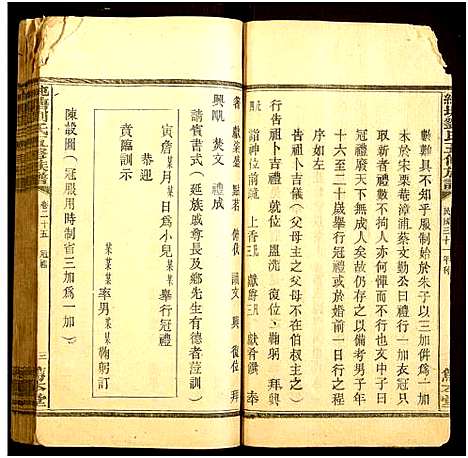 難且不知乎服制始於朱子以三加併爲一加
未於宋栗菴漳浦蔡文勤公曰一加衣冠只
取新者禮數不拘人亦何憚而不行也文中子曰
冠禮廢天下無成人矣故仍存之以備考男子年
十六至二十歲舉行冠禮或於婚前一日行之
序如左
行告祖卜吉儀(父母不在伯叔主之)
告祖卜吉禮 就位 盥洗 復位 鞠躬 拜興
四 詣神位前 跪 上香 獻爵三 獻餚饌 奉
俯伏 讀文 興 復位 拜
興四 焚文 禮畢
請賓書式(延族戚尊長及鄉先生有德者蒞訓)
寅詹某月某日爲小兒某某舉行冠禮
恭迎
賁臨訓示
某某某率男某某鞠躬訂
陳設圖(冠服用時制省三加爲一加)
卷二十五 冠禮
三